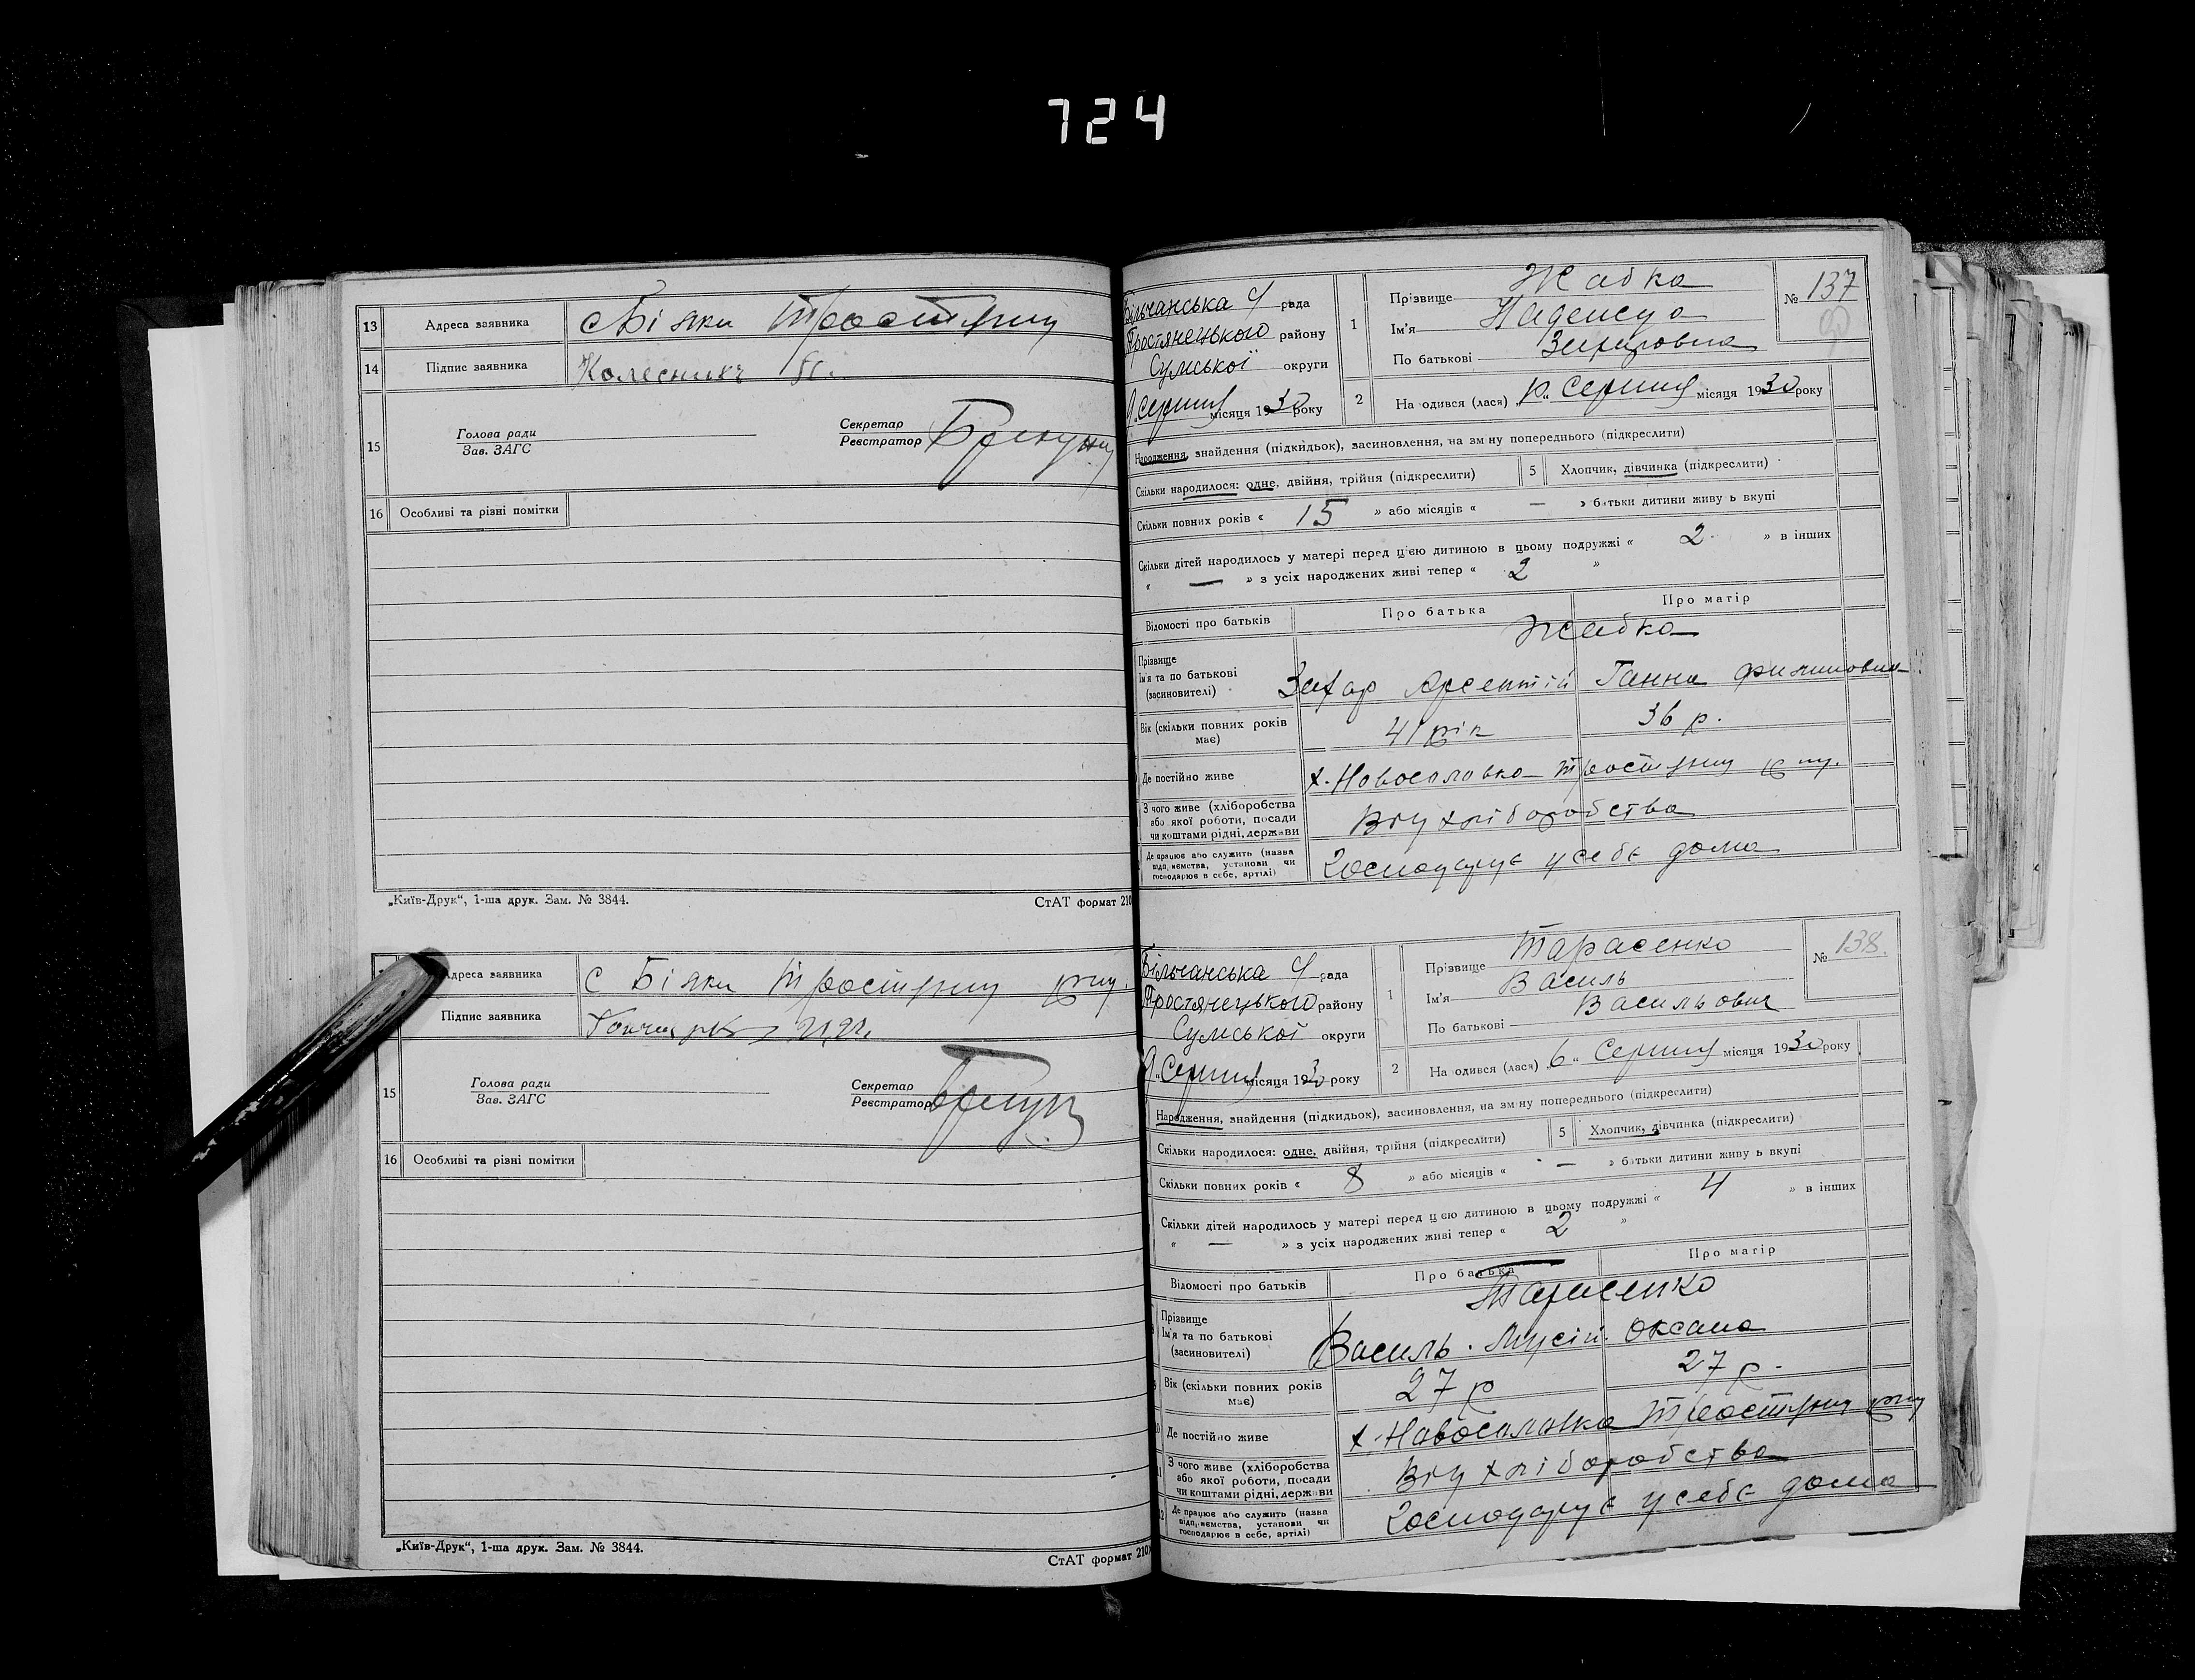 724
13 Адреса заявника с Біяки Тростян
14 Підпис заявника Колесник
15 Голова ради
Зав. ЗАГС
Секретар
Реєстратор
16 Особливі та різні помітки
„Київ-Друк“, 1-ша друк. Зам. № 3844. СтАТ формат 210
Адреса заявника с Біяки
Підпис заявника
15 Голова ради
Зав. ЗАГС
Секретар
Реєстратор
16 Особливі та різні помітки
„Київ-Друк“, 1-ша друк. Зам. № 3844. СтАТ формат 210
Більчанська рада
Тростянецького району
Сумської округи
Серпня місяця 1930 року
1 Прізвище Жабка
Ім'я Надежда
По батькові Захаровна
№ 137
2 На одився (лася) Серпня місяця 1930 року
Народження, знайдення (підкидьок), засиновлення, на зм ну попереднього (підкреслити)
Скільки народилося: одне, двійня, трійня (підкреслити) 5 Хлопчик, дівчинка (підкреслити)
Скільки повних років « 15 » або місяців « — » батьки дитини живу ь вкупі
Скільки дітей народилось у матері перед цією дитиною в цьому подружжі « 2 » в інших
« — » з усіх народжених живі тепер « 2 »
Відомості про батьків Про батька Про матір
Жабка
Прізвище
Ім'я та по батькові
(засиновителі)
Захар Арсентій Ганна
Вік (скільки повних років
має)
41 рік 36 р.
Де постійно живе х. Новоселовка
З чого живе (хліборобства
або якої роботи, посади
чи коштами рідні, держави
хліборобства
Де працює або служить (назва
підприємства, установи чи
господарює в себе, артілі)
Господарує у себе дома
Більчанська рада
Тростянецького району
Сумської округи
Серпня місяця 1930 року
1 Прізвище Тарасенко
Ім'я Василь
По батькові Васильович
№ 138.
2 На одився (лася) 6 Серпня місяця 1930 року
Народження, знайдення (підкидьок), засиновлення, на зм ну попереднього (підкреслити)
Скільки народилося: одне, двійня, трійня (підкреслити) 5 Хлопчик, дівчинка (підкреслити)
Скільки повних років « 8 » або місяців « — » батьки дитини живу ь вкупі
Скільки дітей народилось у матері перед цією дитиною в цьому подружжі « 4 » в інших
« — » з усіх народжених живі тепер « 2 »
Відомості про батьків Про батька Про матір
Тарасенко
Прізвище
Ім'я та по батькові
(засиновителі)
Василь. Мусій. Оксана
Вік (скільки повних років
має)
27 р 27 р.
Де постійно живе х. Новоселовка
З чого живе (хліборобства
або якої роботи, посади
чи коштами рідні, держави
хліборобства
Де працює або служить (назва
підприємства, установи чи
господарює в себе, артілі)
Господарує у себе дома